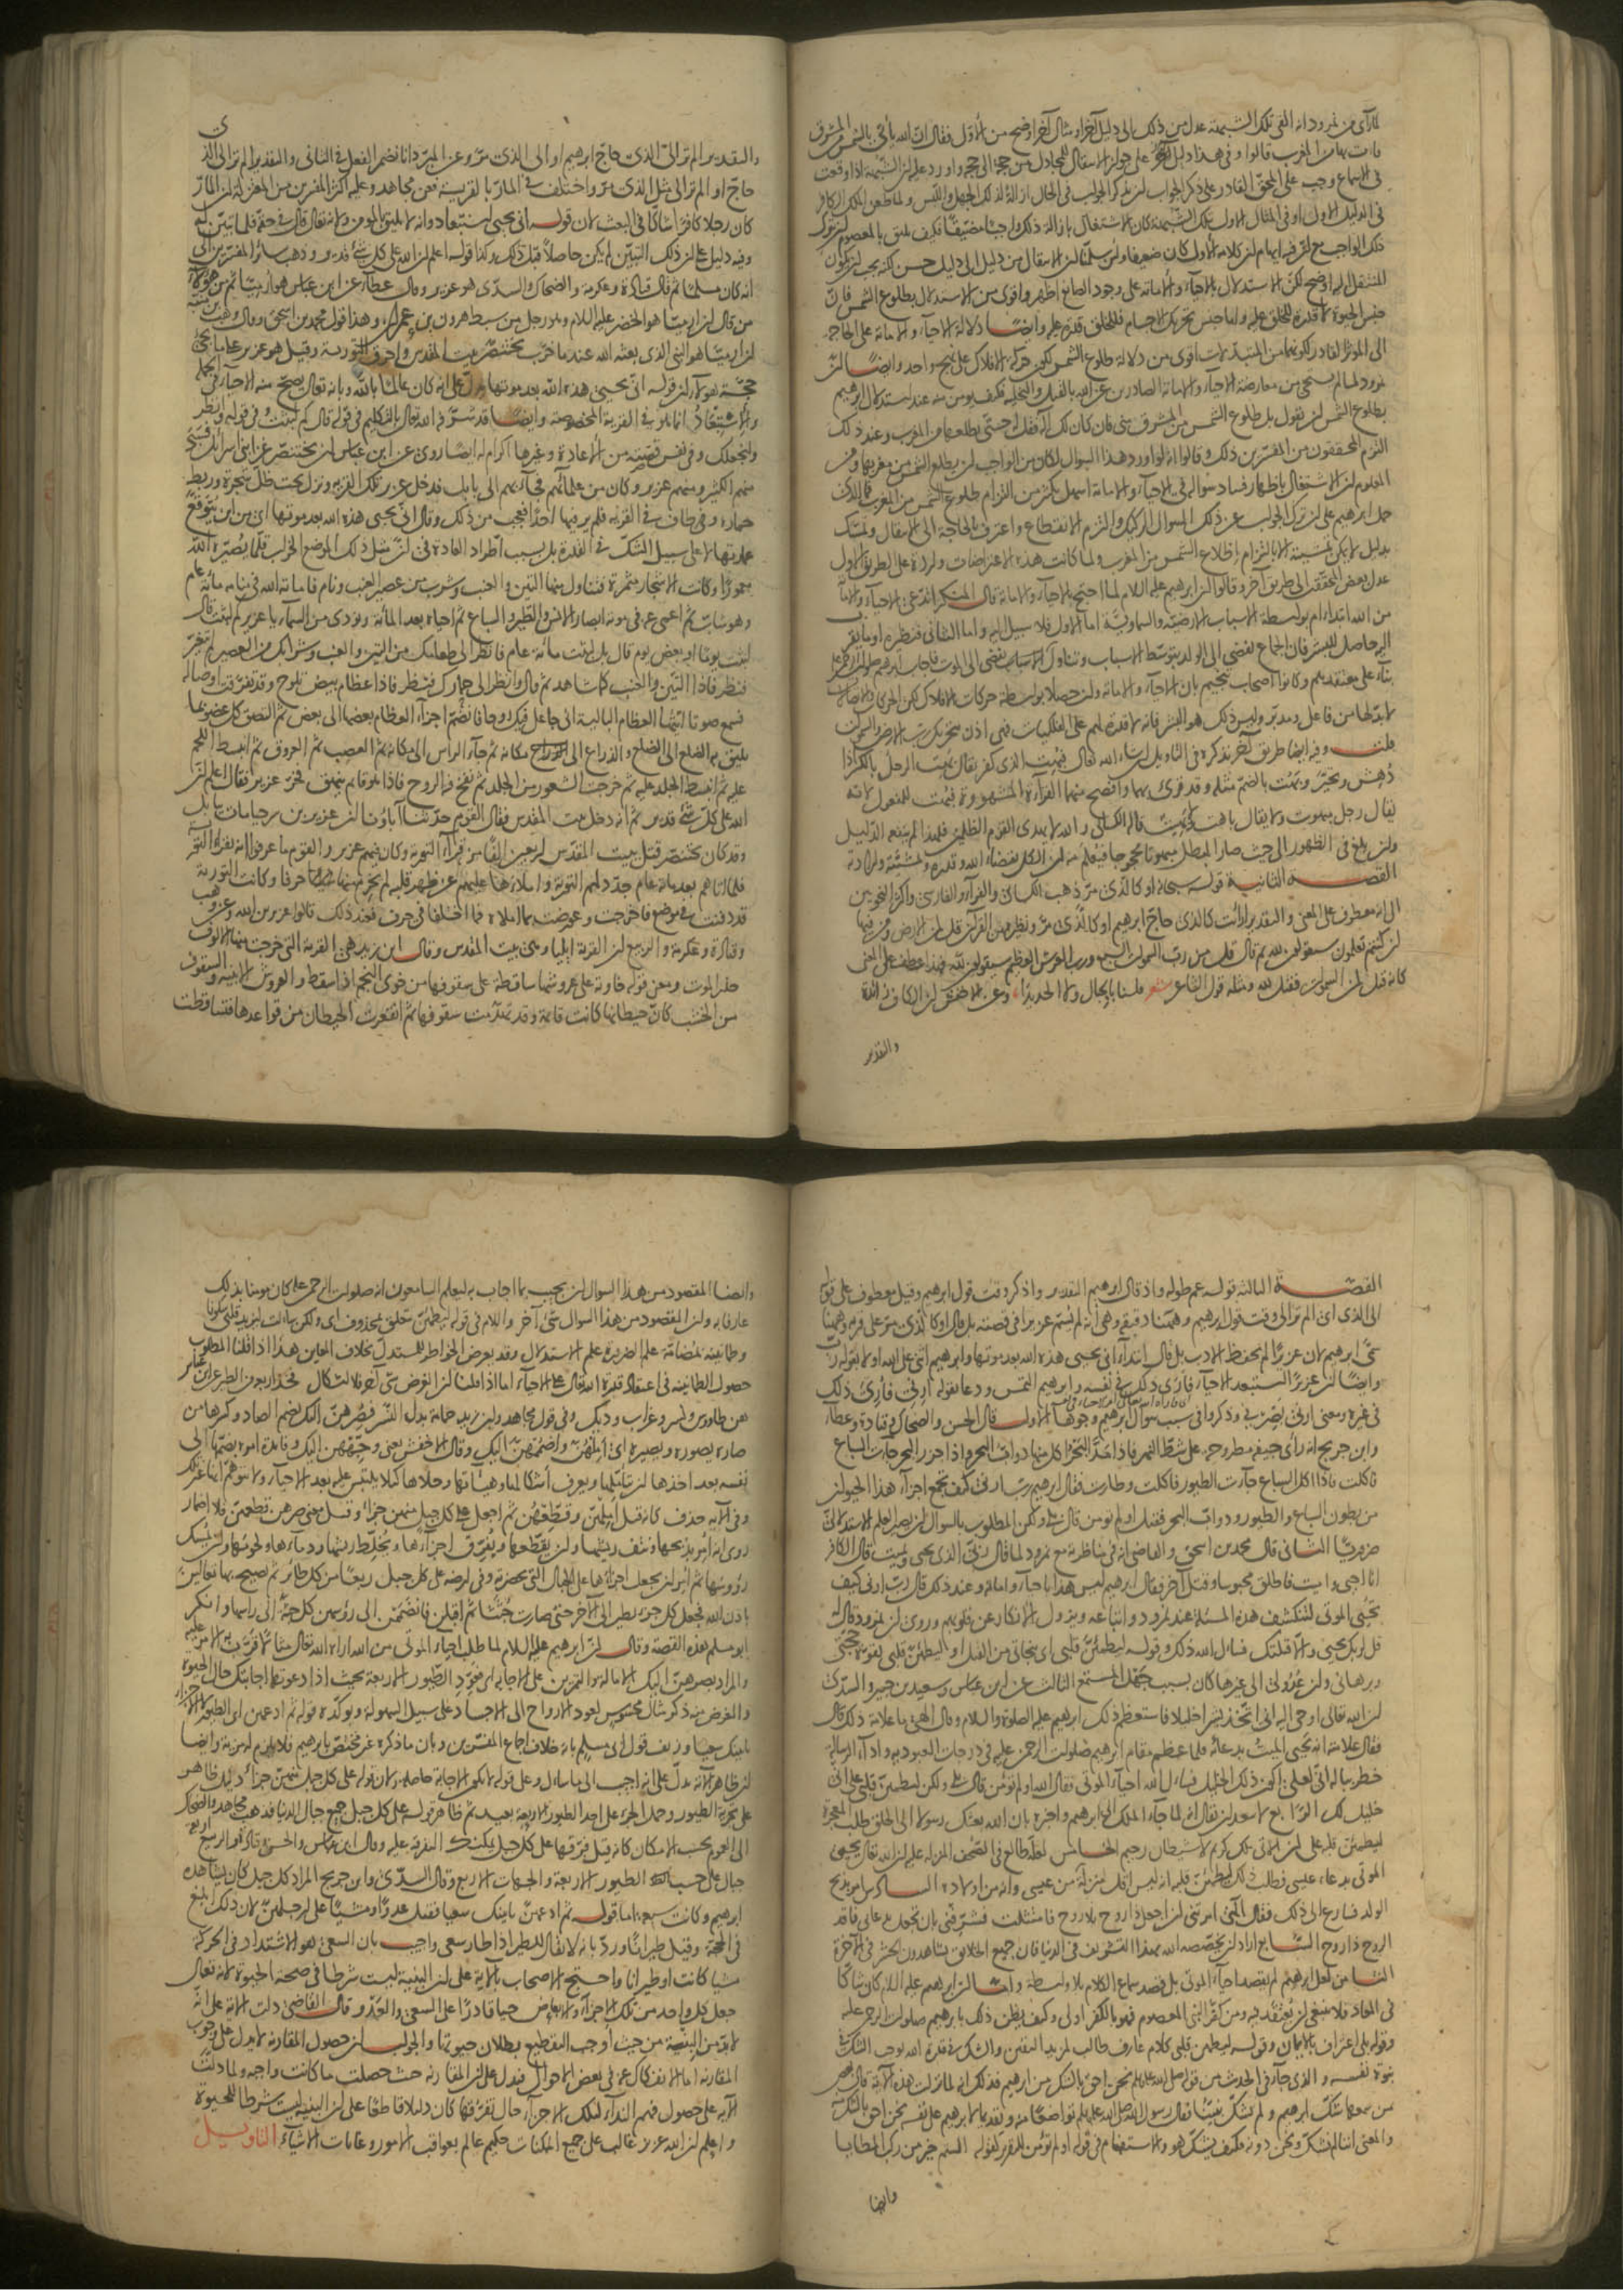 لما رأى من نمرود أنه ألقى تلك الشبهة عدل من ذلك إلى دليل آخر أو مثال آخر أوضح من الأول فقال إن الله يأتي بالشمس من المشرق
فأت بها من المغرب قالوا وفي هذا دليل على جواز الانتقال للمجادل من حجة إلى حجة وأورد عليه أن الشبهة إذا وقعت
في الأسماع وجب على المحق القادر على ذكر الجواب أن يذكر الجواب في الحال إزالة لذلك الجهل واللبس ولما طعن الملك الكافر
في الدليل الأول أو في المثال الأول بتلك الشبهة كان الاشتغال بإزالة ذلك واجبا مضيقا فكيف يليق بالمعصوم أن يترك
ذلك الواجب مع أن فيه إيهام أن كلامه الأول كان ضعيفا ولئن سلمنا أن الانتقال من دليل إلى دليل حسن لكنه يجب أن يكون
المنتقل إليه أوضح لكن الاستدلال بالإحياء والإماتة على وجود الصانع أظهر وأقوى من الاستدلال بطلوع الشمس فإن
جنس الحياة لا قدرة للخلق عليه وأما جنس تحريك الأجسام فللخلق قدرة عليه وأيضا دلالة الإحياء والإماتة على الحاجة
إلى المؤثر القادر لكونهما من المتبدلات أقوى من دلالة طلوع الشمس لكون حركة الأفلاك على نهج واحد وأيضا أن
نمرود لما لم يستحي من معارضة الإحياء والإماتة الصادرين عن الله بالقتل والتخلية فكيف يؤمن منه عند استدلال إبراهيم
بطلوع الشمس أن يقول بل طلوع الشمس من المشرق مني فإن كان لك إله فقل له حتى يطلعها من المغرب وعند ذلك
التزم المحققون من المفسرين ذلك وقالوا إنه لو أورد هذا السؤال لكان من الواجب أن يطلع الشمس من مغربها ومن
المعلوم أن الاشتغال بإظهار فساد سؤاله في الإحياء والإماتة أسهل بكثير من التزام طلوع الشمس من المغرب فما الذي
حمل إبراهيم على أن ترك الجواب عن ذلك السؤال الركيك والتزم الانقطاع واعترف بالحاجة إلى الانتقال وتمسك
بدليل لا يمكن تمشيته إلا بالتزام إطلاع الشمس من المغرب ولما كانت هذه الاعتراضات واردة على الطريق الأول
عدل بعض المحققين إلى طريق آخر وقالوا إن إبراهيم عليه السلام لما احتج بالإحياء والإماتة قال المنكر أتدعي الإحياء والإماتة
من الله ابتداء أم بواسطة الأسباب الأرضية والسماوية أما الأول فلا سبيل إليه وأما الثاني فنظيره أو ما يقرب
إليه حاصل للبشر فإن الجماع يفضي إلى الولد بتوسط الأسباب وتناول السم يفضي إلى الموت فأجاب إبراهيم
بناء على معتقدهم وكانوا أصحاب تنجيم بأن الإحياء والإماتة وإن حصلا بواسطة حركات الأفلاك لكن الحركات
لا بد لها من فاعل ومدبر وليس ذلك هو البشر فإنه لا قدرة لهم على الفلكيات فهي إذن بتحريك رب الأرض والسموات
قلت وفيه أيضا طريق آخر نذكره في التأويل إن شاء الله تعالى فبهت الذي كفر يقال بهت الرجل بالكسر إذا
دهش وتحير وبهت بالضم مثله وقد قرئ بهما وأفصح منهما القراءة المشهورة فبهت للمفعول لأنه
يقال رجل مبهوت ولا يقال باهت قاله الكسائي والله لا يهدي القوم الظالمين فلهذا لم ينفعه الدليل
وإن بلغ في الظهور إلى حيث صار المبطل مبهوتا محجوجا فيعلم منه أن الكل بقضاء الله وقدره ومشيئته وإرادته
القصة الثانية قوله سبحانه أو كالذي مر ذهب الكسائي والفراء والفارسي وأكثر النحويين
إلى أنه معطوف على المعنى والتقدير أرأيت كالذي حاج إبراهيم أو كالذي مر ونظيره من القرآن قل لمن الأرض ومن فيها
إن كنتم تعلمون سيقولون لله ثم قال قل من رب السموات السبع ورب العرش العظيم سيقولون لله فهذا عطف على المعنى
كأنه قيل لمن السموات فقيل لله ومثله قول الشاعر شعر فلسنا بالجبال ولا الحديدا وعن الأخفش أن الكاف زائدة
والتقدير
والتقدير ألم تر إلى الذي حاج إبراهيم أو إلى الذي مر وعن المبرد أنا نضمر الفعل في الثاني والتقدير ألم تر إلى الذي
حاج أو ألم تر إلى مثل الذي مر واختلف في المار بالقرية فعن مجاهد وعليه أكثر المفسرين من المعتزلة أن المار
كان رجلا كافرا شاكا في البعث لأن قوله أنى يحيي استبعاد وأنه لا يليق بالمؤمن ولأنه تعالى قال في حقه فلما تبين له
وفيه دليل على أن ذلك التبين لم يكن حاصلا قبل ذلك وكذا قوله أعلم أن الله على كل شيء قدير وذهب سائر المفسرين إلى
أنه كان مسلما ثم قال قتادة وعكرمة والضحاك والسدي هو عزير وقال عطاء عن ابن عباس هو أرميا ثم من هؤلاء
من قال إن أرميا هو الخضر عليه السلام وهو رجل من سبط هرون بن عمران وهذا قول محمد بن إسحق وقال وهب بن منبه
إن أرميا هو النبي الذي بعثه الله عندما خرب بختنصر بيت المقدس وأحرق التورية وقيل هو عزير على ما يجيء
حجة هؤلاء أن قوله أنى يحيي هذه الله بعد موتها يدل على أنه كان عالما بالله وبأنه تعالى يصح منه الإحياء في الجملة
والاستبعاد إنما هو في القرية المخصوصة وأيضا قد شرفه الله تعالى بالتكليم في قوله قال كم لبثت وفي قوله وانظر
ولنجعلك وفي نفس قصته من الإعادة وغيرها إكرام له أيضا روي عن ابن عباس أن بختنصر غزا بني إسرائيل فسبى
منهم الكثير ومنهم عزير وكان من علمائهم فجاء بهم إلى بابل فدخل عزير تلك القرية ونزل تحت ظل شجرة وربط
حماره وفي طاف في القرية فلم ير فيها أحدا فعجب من ذلك وقال أنى يحيي هذه الله بعد موتها أي من أين يتوقع
عمارتها لا على سبيل الشك في القدرة بل بسبب اطراد العادة في أن مثل ذلك الموضع الخراب قلما يصيره الله
معمورا وكانت الأشجار مثمرة فتناول منها التين والعنب وشرب من عصير العنب ونام فأماته الله في منامه مائة عام
وهو شاب ثم أعمى عن موته أبصار الإنس والطير والسباع ثم أحياه بعد المائة ونودي من السماء يا عزير كم لبثت قال
لبثت يوما أو بعض يوم قال بل لبثت مائة عام فانظر إلى طعامك من التين والعنب وشرابك من العصير لم يتغير
فنظر فإذا التين والعنب كما شاهد ثم قال وانظر إلى حمارك فنظر فإذا عظام بيض تلوح وقد تفرقت أوصاله
فسمع صوتا أيتها العظام البالية إني جاعل فيك روحا فانضم أجزاء العظام بعضها إلى بعض ثم التصق كل عضو بما
يليق به الضلع إلى الضلع والذراع إلى مكانه ثم جاء الرأس إلى مكانه ثم العصب ثم العروق ثم انبسط اللحم
عليه ثم انبسط الجلد عليه ثم خرجت الشعور من الجلد ثم نفخ فيه الروح فإذا هو قائم ينهق فخر عزير فقال أعلم أن
الله على كل شيء قدير ثم إنه دخل بيت المقدس فقال القوم حدثنا آباؤنا أن عزير بن سرخيا مات ببابل
وقد كان بختنصر قتل ببيت المقدس أربعين ألفا من قراء التورية وكان فيهم عزير والقوم ما عرفوا أنه يقرأ التورية
فلما أتاهم بعد مائة عام جدد لهم التورية وأملاها عليهم عن ظهر قلبه لم يخرم منها حرفا وكانت التورية
قد دفنت في موضع فأخرجت وعورضت بما أملاه فما اختلفا في حرف فعند ذلك قالوا عزير بن الله وعن وهب
وقتادة وعكرمة والربيع أن القرية إيليا وهي بيت المقدس وقال ابن زيد هي القرية التي خرجت منها الألوف
حذر الموت ومعنى قوله خاوية على عروشها ساقطة على سقوفها من خوى النجم إذا سقط والعروش الأبنية والسقوف
من الخشب كان حيطانها كانت قائمة وقد تهدمت سقوفها ثم انقعرت الحيطان من قواعدها فتساقطت
القصة الثالثة قوله عم طوله وإذ قال إبراهيم التقدير واذكر وقت قول إبراهيم وقيل معطوف على قوله
إلى الذي أي ألم تر إلى وقت قول إبراهيم وههنا دقيقة وهي أنه لم يسم عزيرا في قصته بل قال أو كالذي مر على قرية وههنا
سمى إبراهيم لأن عزيرا لم يحفظ الأدب بل قال ابتداء أنى يحيي هذه الله بعد موتها وإبراهيم أثنى على الله أولا بقوله رب
وأيضا أن عزيرا استبعد الإحياء فأري ذلك في نفسه وإبراهيم التمس ودعا بقوله أرني فأري ذلك
في غيره ومعنى أرني بصرني وذكروا في سبب سؤال إبراهيم وجوها الأول قال الحسن والضحاك وقتادة وعطاء
وابن جريج أنه رأى جيفة مطروحة على شط النهر فإذا مد البحر أكل منها دواب البحر وإذا جزر البحر جاءت السباع
فأكلت فإذا أكل السباع جاءت الطيور فأكلت وطارت فقال إبراهيم رب أرني كيف تجمع أجزاء هذا الحيوان
من بطون السباع والطيور ودواب البحر فقيل أو لم تؤمن قال بلى ولكن المطلوب بالسؤال أن يصير العلم الاستدلالي
ضروريا الثاني قال محمد بن إسحق والقاضي إنه في مناظرته مع نمرود لما قال ربي الذي يحيي ويميت قال الكافر
أنا أحيي وأميت فأطلق محبوسا وقتل آخر فقال إبراهيم ليس هذا بإحياء وإماتة وعند ذلك قال رب أرني كيف
تحيي الموتى لتنكشف هذه المسئلة عند نمرود وأتباعه ويزول الإنكار عن قلوبهم وروي أن نمرود قال
قل لربك يحيي وإلا قتلتك فسأل الله ذلك وقوله ليطمئن قلبي أي بنجاتي من القتل أو ليطمئن قلبي بقوة حجتي
وبرهاني وإن عدولي إلى غيرها كان بسبب جهل المستمع الثالث عن ابن عباس وسعيد بن جبير والسدي
أن الله تعالى أوحى إليه أني أتخذ بشرا خليلا فاستعظم ذلك إبراهيم عليه الصلوة والسلام وقال إلهي ما علامة ذلك قال
فقال علامته أنه يحيي الميت بدعائه فلما عظم مقام إبراهيم صلوات الرحمن عليه في درجات العبودية وأداء الرسالة
خطر بباله أني لعلي أكون ذلك الخليل فسأل الله إحياء الموتى فقال الله أو لم تؤمن قال بلى ولكن ليطمئن قلبي على أني
خليل لك الرابع لا يبعد أن يقال إنه لما جاء الملك إلى إبراهيم وأخبره بأن الله بعثك رسولا إلى الخلق طلب المعجزة
ليطمئن قلبه على أن الآتي ملك كريم لا شيطان رجيم الخامس لعله طالع في الصحف المنزلة عليه أن الله تعالى يحيي
الموتى بدعاء عيسى فطلب ذلك ليطمئن قلبه أنه ليس أقل منزلة من عيسى وأنه من أولاده السادس أمر بذبح
الولد فسارع إلى ذلك فقال إلهي أمرتني أن أجعل ذا روح بلا روح فامتثلت فشرفني بأن تجعل بدعائي فاقد
الروح ذا روح السابع أراد أن يخصصه الله بهذا التشريف في الدنيا فإن جميع الخلائق يشاهدون الحشر في الآخرة
الثامن لعل إبراهيم لم يقصد إحياء الموتى بل قصد سماع الكلام بلا واسطة وأما أن إبراهيم عليه السلام كان شاكا
في المعاد فلا ينبغي أن يعتقد فيه ومن كفر النبي المعصوم فهو بالكفر أولى وكيف يظن ذلك بإبراهيم صلوات الرحمن عليه
وقوله بلى اعتراف بالإيمان وقوله ليطمئن قلبي كلام عارف طالب لمزيد اليقين والشك في قدرة الله يوجب الشك في
نبوة نفسه والذي جاء في الحديث من قوله صلى الله عليه وسلم نحن أحق بالشك من إبراهيم فذلك أنه لما نزلت هذه الآية قال بعض
من سمعها شك إبراهيم ولم يشك نبينا فقال رسول الله صلى الله عليه وسلم تواضعا منه وتقديما لإبراهيم على نفسه نحن أحق بالشك منه
والمعنى أننا لم نشك ونحن دونه فكيف يشك هو والاستفهام في قوله أو لم تؤمن للتقرير كقوله ألستم خير من ركب المطايا
وأيضا
وأيضا المقصود من هذا السؤال أن يجيب بما أجاب به ليعلم السامعون أنه صلوات الرحمن عليه كان مؤمنا بذلك
عارفا به وأن المقصود من هذا السؤال شيء آخر واللام في قوله ليطمئن متعلق بمحذوف أي ولكن سألت ليزيد قلبي سكونا
وطمأنينة بمضامة علم الضرورة علم الاستدلال وقد يعرض الخواطر للمستدل بخلاف المعاين هذا إذا قلنا المطلوب
حصول الطمأنينة في اعتقاد قدرة الله تعالى على الإحياء أما إذا قلنا أن الغرض شيء آخر فلا إشكال فخذ أربعة من الطير عن ابن عباس
هن طاووس ونسر وغراب وديك وفي قول مجاهد وابن زيد حمامة بدل النسر فصرهن إليك بضم الصاد وكسرها من
صاره يصوره ويصيره أي أملهن واضممهن إليك وقال الأخفش يعني وجههن إليك وفائدة أمره بضمها إلى
نفسه بعد أخذها أن يتأملها ويعرف أشكالها وهيئاتها وحلاها كيلا يلتبس عليه بعد الإحياء ولا يتوهم أنها غير تلك
وفي الآية حذف كأنه قيل أملهن وقطعهن ثم اجعل على كل جبل منهن جزءا وقيل معنى صرهن قطعهن فلا إضمار
روي أنه أمر بذبحها ونتف ريشها وأن يقطعها ويفرق أجزاءها ويخلط ريشها ودماءها ولحومها وأن يمسك
رؤوسها ثم أمر أن يجعل أجزاءها على الجبال التي بحضرته وفي أرضه على كل جبل ربعا من كل طائر ثم يصيح بها تعالين
بإذن الله فجعل كل جزء يطير إلى الآخر حتى صارت جثثا ثم أقبلن فانضممن إلى رؤسهن كل جثة إلى رأسها وأنكر
أبو مسلم هذه القصة وقال إن إبراهيم عليه السلام لما طلب إحياء الموتى من الله أراه الله تعالى مثالا قرب به الأمر عليه
والمراد بصرهن إليك الإمالة والتمرين على الإجابة أي فعود الطيور الأربعة بحيث إذا دعوتها أجابتك حال الحيوة
والغرض منه ذكر مثال محسوس لعود الأرواح إلى الأجساد على سبيل السهولة ويؤكده قوله ثم ادعهن أي الطيور لا الأجزاء
يأتينك سعيا وزيف قول أبي مسلم بأنه خلاف إجماع المفسرين وبأن ما ذكره غير مختص بإبراهيم فلا يلزم له مزية وأيضا
أن ظاهر الآية يدل على أنه أجيب إلى ما سأل وعلى قوله لا تكون الإجابة حاصلة ولأن قوله على كل جبل منهن جزءا دليل ظاهر
على تجزية الطيور وحمل الجزء على أحد الطيور الأربعة بعيد ثم ظاهر قوله على كل جبل جميع جبال الدنيا فذهب مجاهد والضحاك
إلى العموم بحسب الإمكان كأنه قيل فرقها على كل جبل يمكنك التفرقة عليه وقال ابن عباس والحسن وقتادة والربيع أربعة
جبال على حسب الطيور الأربعة والجهات الأربع وقال السدي وابن جريج المراد كل جبل كان يشاهده
إبراهيم وكانت سبعة أما قوله ثم ادعهن يأتينك سعيا فقيل عدوا ومشيا على أرجلهن لأن ذلك أبلغ
في الحجة وقيل طيرانا ورد بأنه لا يقال للطير إذا طار سعى وأجيب بأن السعي هو الاشتداد في الحركة
مشيا كانت أو طيرانا واحتج الأصحاب بالآية على أن البنية ليست شرطا في صحة الحيوة لأنه تعالى
جعل كل واحد من تلك الأجزاء والأبعاض حيا قادرا على السعي والعدو وقال القاضي دلت الآية على أنه
لا بد من البنية من حيث أوجب التقطيع بطلان حيوتها والجواب أن حصول المقارنة لا يدل على وجوب
المقارنة أما الانفكاك عنه في بعض الأحوال فيدل على أن المقارنة حيث حصلت ما كانت واجبة ولما دلت
الآية على حصول فهم النداء لتلك الأجزاء حال تفرقها كان دليلا قاطعا على أن البنية ليست شرطا للحيوة
واعلم أن الله عزيز غالب على جميع الممكنات حكيم عالم بعواقب الأمور وغايات الأشياء التأويل